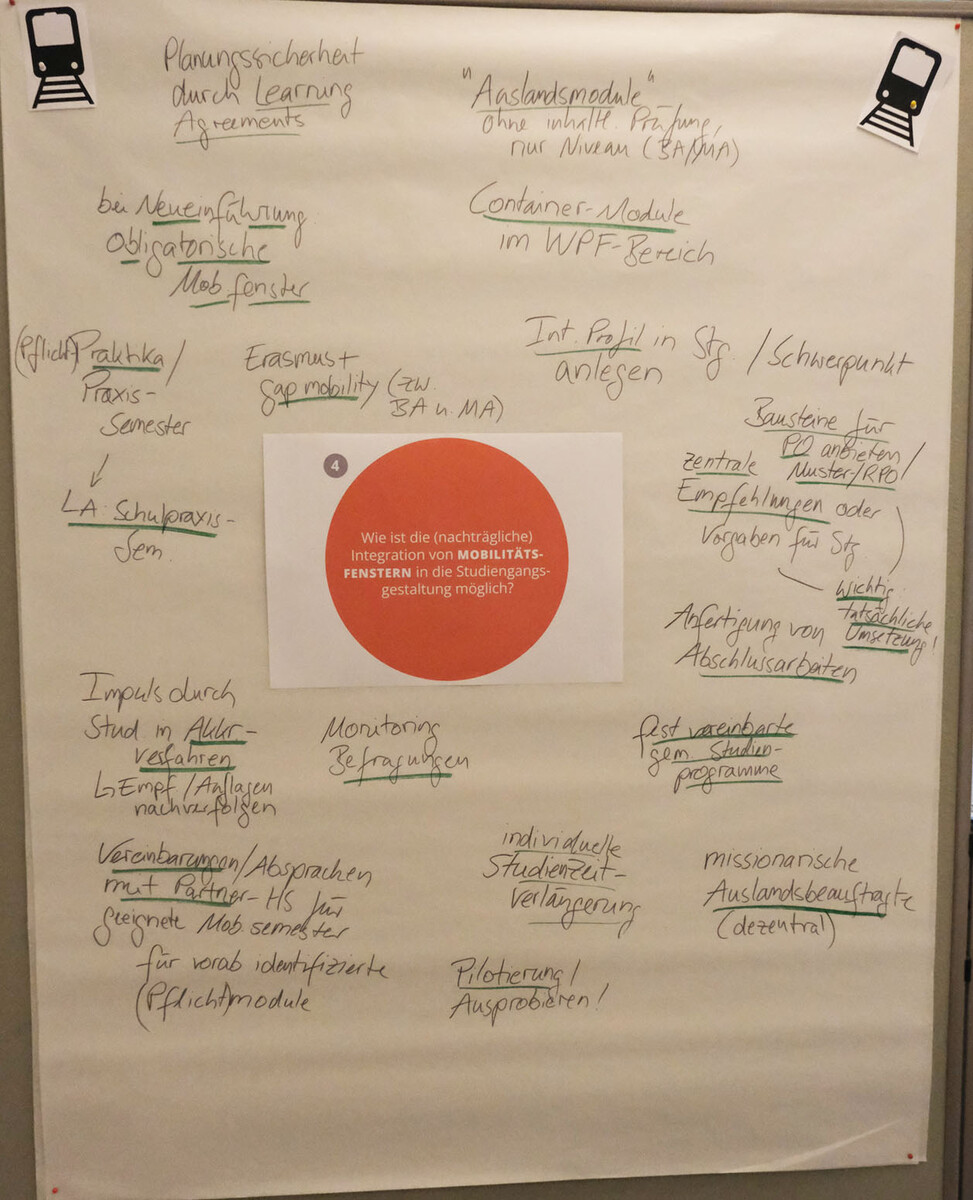 Planungssicherheit
durch Learning
Agreements
"Auslandsmodule"
ohne inhaltl. Prüfung,
nur Niveau (BA/MA)
bei Neueinführung
obligatorische
Mob.fenster
Container-Module
im WPF-Bereich
(Pflicht)Praktika/
Praxis-
Semester
LA: Schulpraxis-
Sem.
Erasmus+
gap mobility (zw.
BA u. MA)
Int. Profil in Stg. / Schwerpunkt
anlegen
Bausteine für
PO anbieten/
Muster-/RPO/
zentrale
Empfehlungen oder
Vorgaben für Stg
wichtig
tatsächliche
Umsetzung!
4
Wie ist die (nachträgliche)
Integration von MOBILITÄTS-
FENSTERN in die Studiengangs-
gestaltung möglich?
Anfertigung von
Abschlussarbeiten
Impuls durch
Stud in Akkr-
verfahren
↳ Empf/Auflagen
nachverfolgen
Monitoring
Befragungen
fest vereinbarte
gem. Studien-
programme
Vereinbarungen/Absprachen
mit Partner-HS für
geeignete Mob.semester
für vorab identifizierte
(Pflicht)module
individuelle
Studienzeit-
verlängerung
missionarische
Auslandsbeauftragte
(dezentral)
Pilotierung/
Ausprobieren!